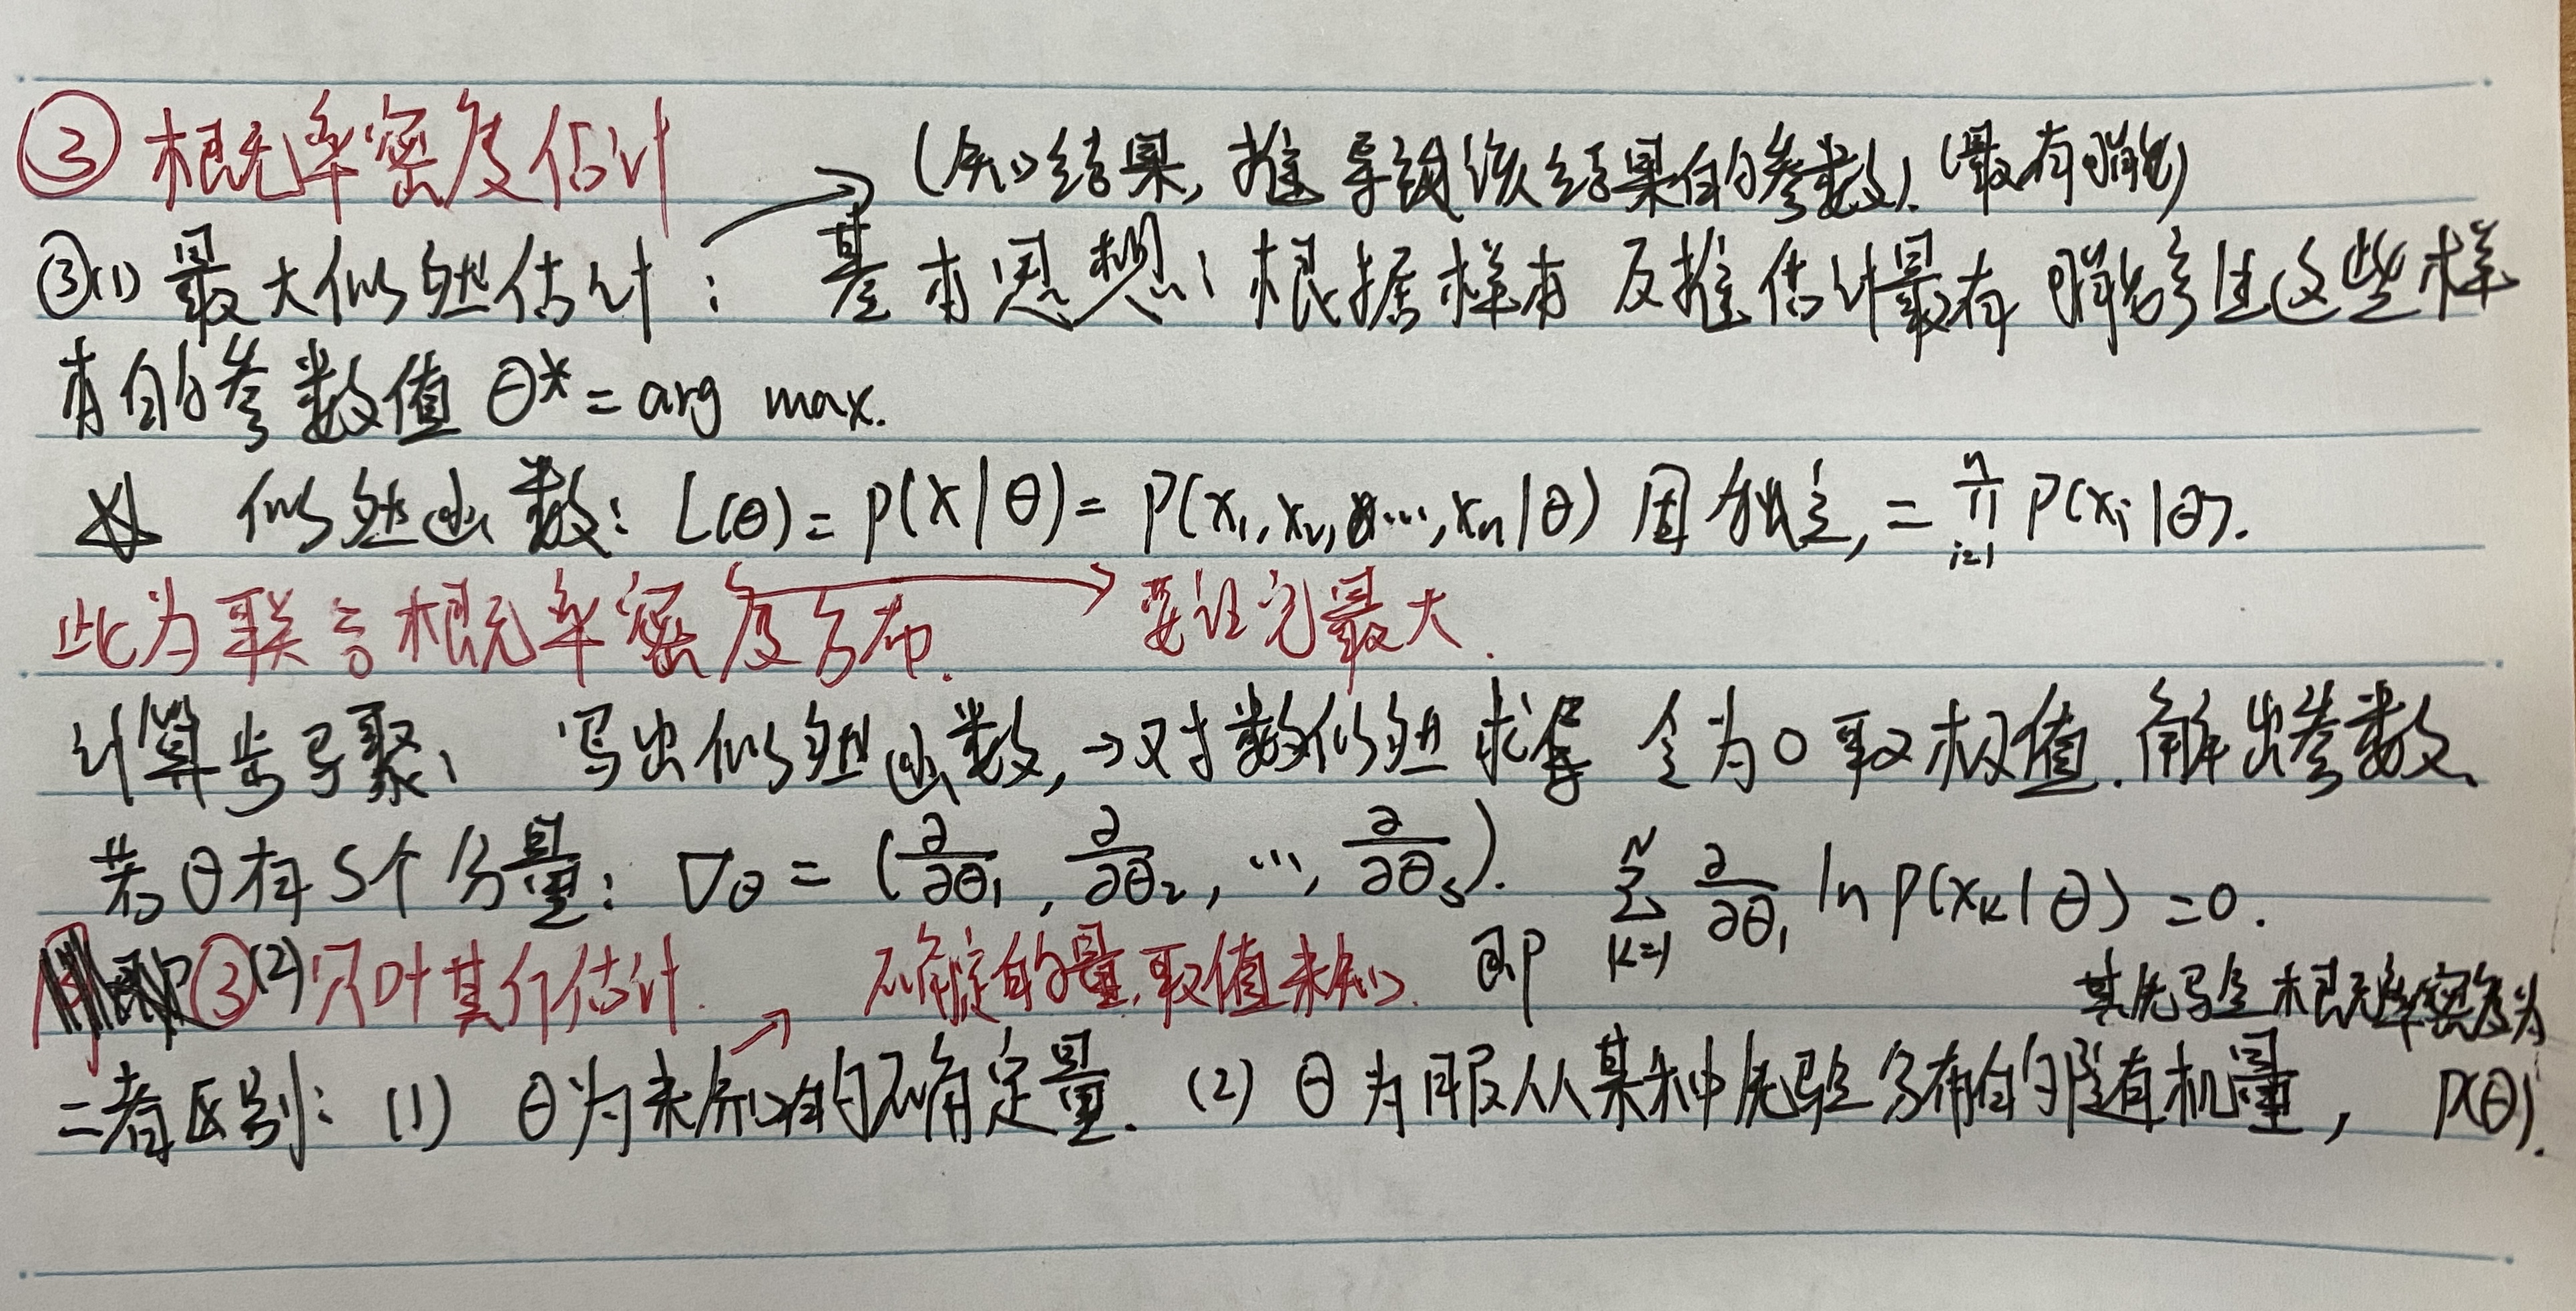 ③ 概率密度估计
(知结果,推导致该结果的参数).(最有可能)
③(1) 最大似然估计: 基本思想: 根据样本 反推估计最有可能产生这些样
本的参数值 θ* = arg max.
☆ 似然函数: L(θ) = p(X|θ) = P(x₁, x₂, ..., xₙ|θ) 因为独立, = ∏ᵢ₌₁ⁿ P(xᵢ|θ).
此为联合概率密度分布. → 要让它最大.
计算步骤: 写出似然函数, →对数似然 求导 令为0 取极值. 解出参数.
若θ有S个分量: ∇θ = (∂/∂θ₁, ∂/∂θ₂, ..., ∂/∂θₛ). 即 ∑ₖ₌₁ᴺ ∂/∂θ₁ ln P(xₖ|θ) = 0.
③(2) 贝叶斯估计. 不确定的量,取值未知.
其先验概率密度为
二者区别: (1) θ为未知的不确定量. (2) θ为服从某种先验分布的随机量, P(θ).